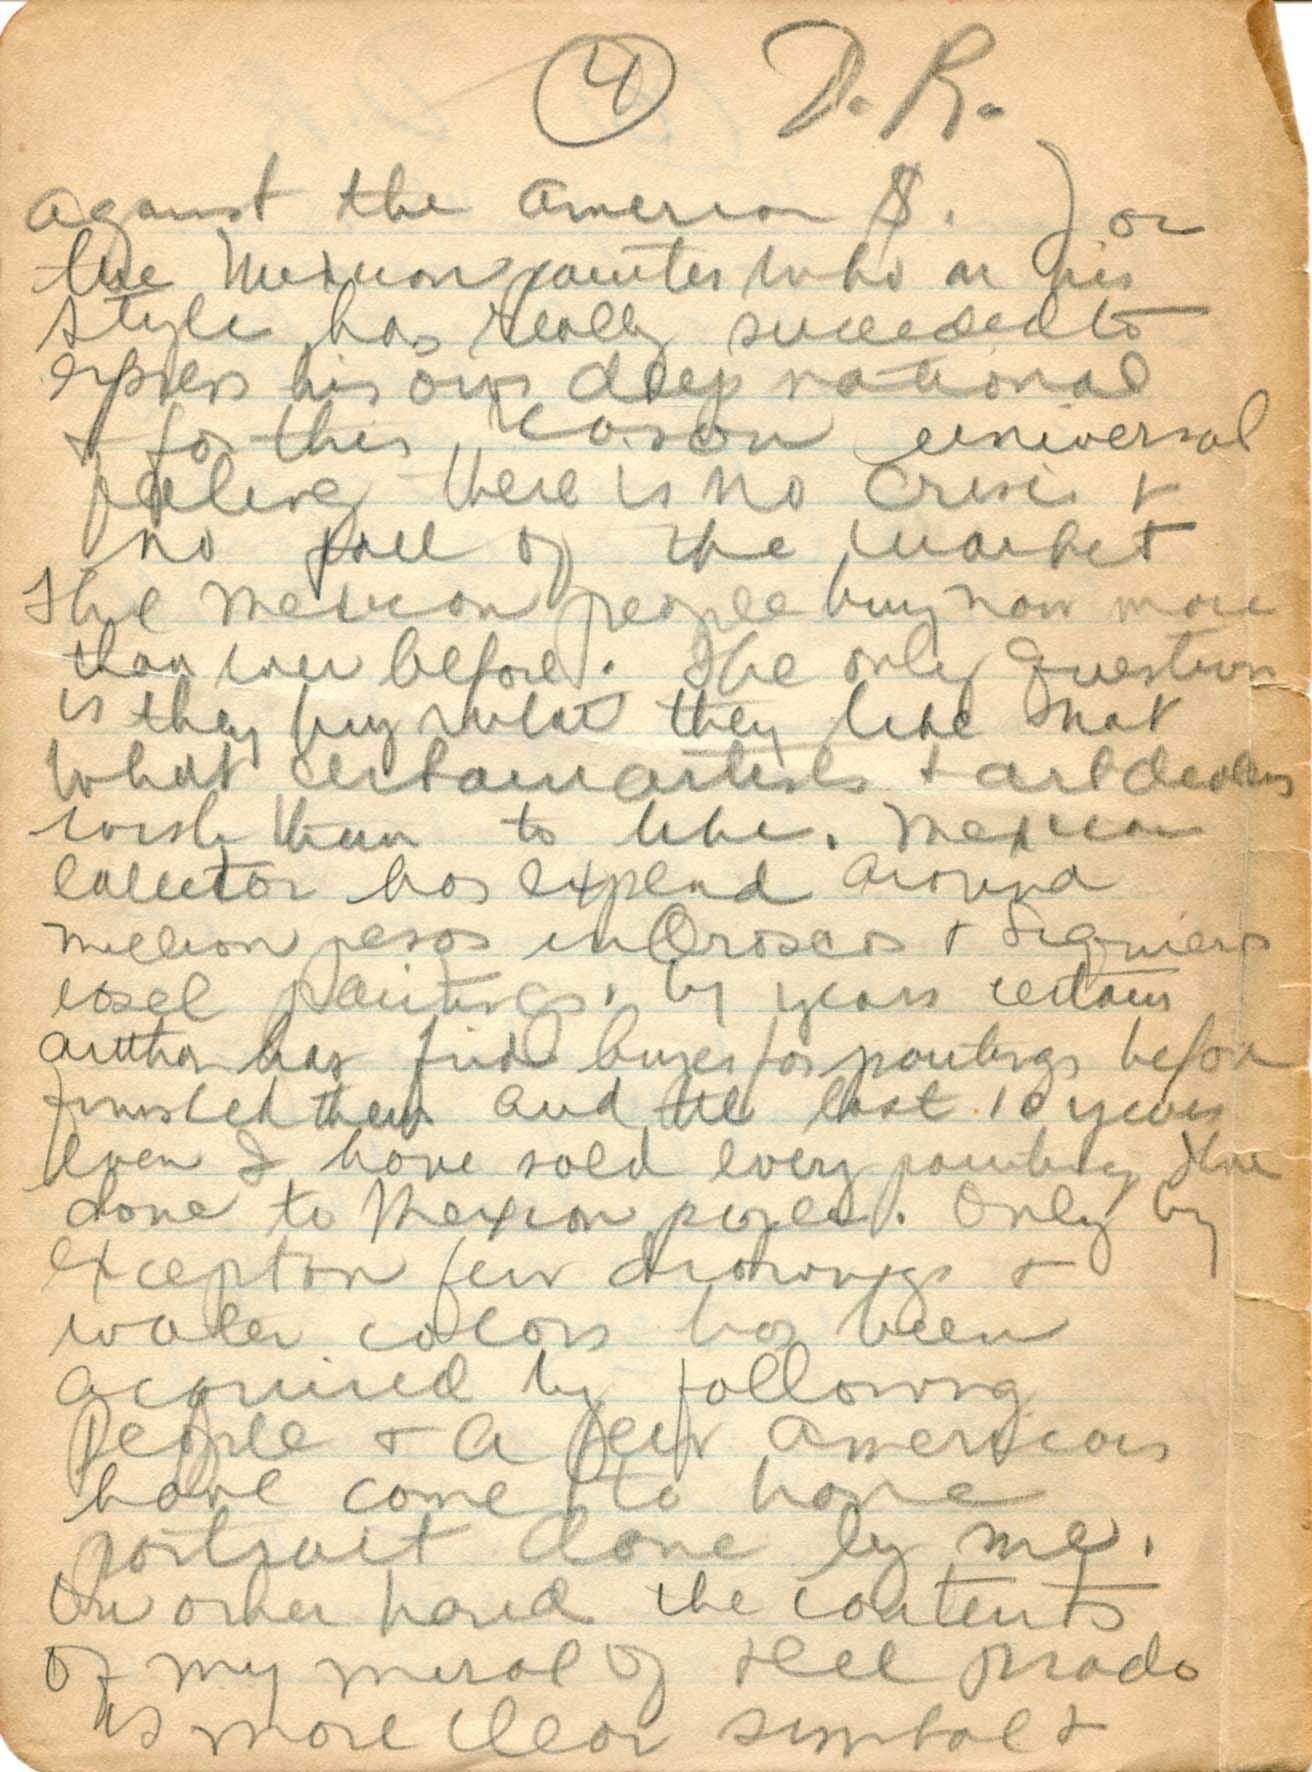 4 D. R.
against the American $. ) or
the Mexican painter who in his
style has really succeeded to
express his own deep national
+ for this reason universal
feeling there is no crisis +
no fall of the market
The Mexican people buy now more
than ever before. The only question
is they buy what they like + not
what certain artists + art dealers
wish them to like. Mexican
collector has expend around
million pesos in Oroscos + Siqueiros
easel paintings. by years certain
author has find buyes for paintings before
finished them and the last 10 years
even I have sold every painting I have
done to Mexican people. Only by
exception few drawings +
water colors has been
acquired by following
people + a few Americans
have come to have
portrait done by me.
On other hand the contents
of my mural of del prado
is more clear symbol +